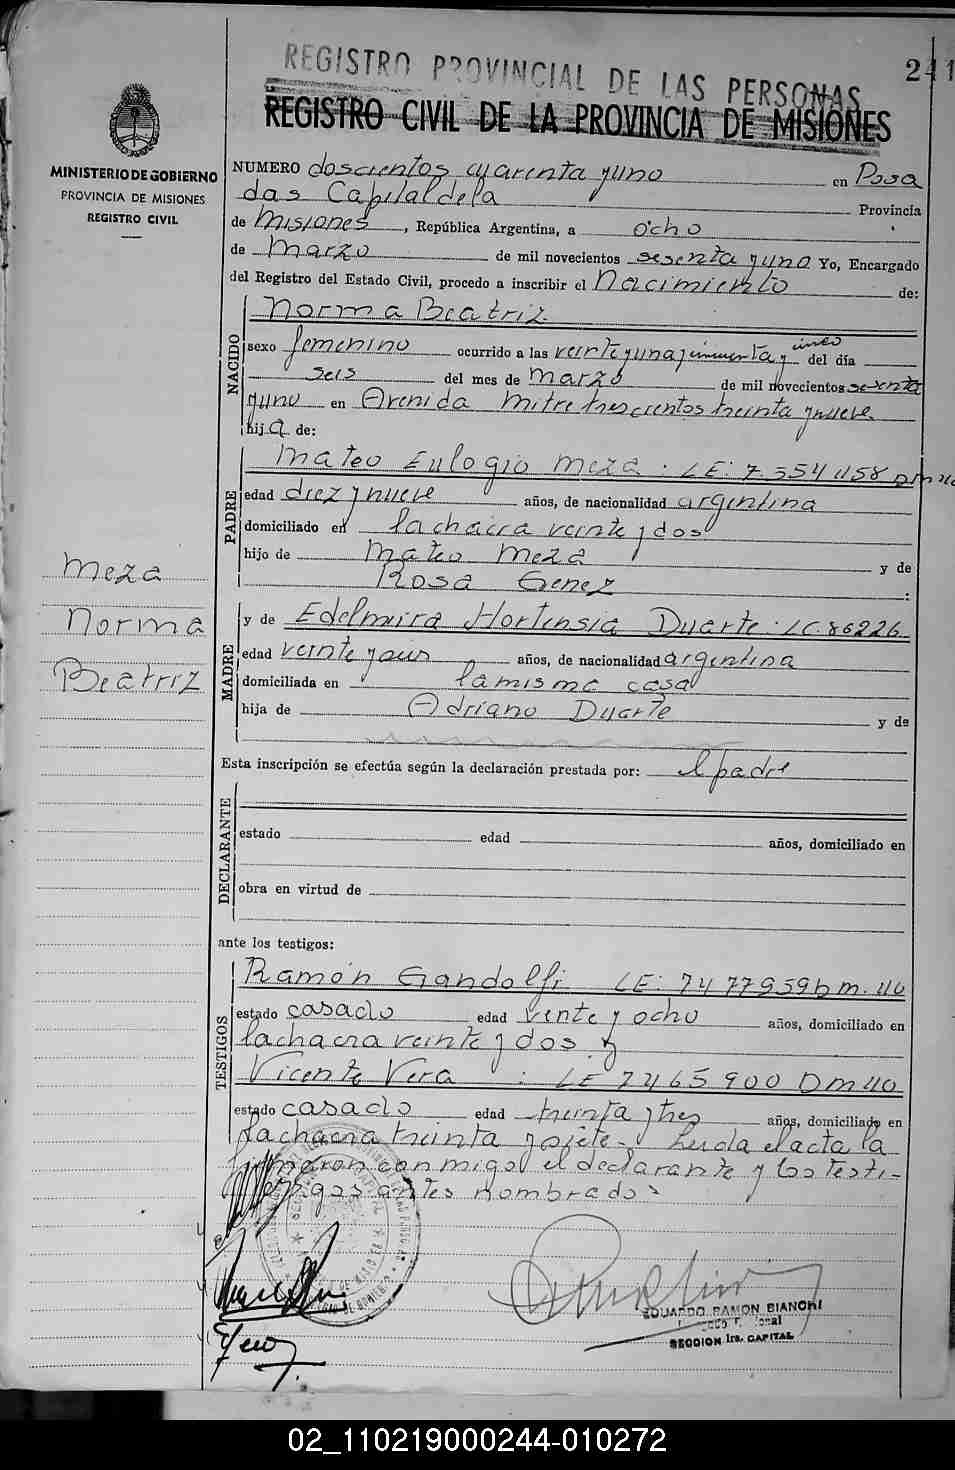 241
REGISTRO PROVINCIAL DE LAS PERSONAS
REGISTRO CIVIL DE LA PROVINCIA DE MISIONES
MINISTERIO DE GOBIERNO
PROVINCIA DE MISIONES
REGISTRO CIVIL
NUMERO doscientos cuarenta y uno en Posa
das Capital de la Provincia
de Misiones, República Argentina, a ocho
de Marzo de mil novecientos sesenta y uno Yo, Encargado
del Registro del Estado Civil, procedo a inscribir el Nacimiento de:
NACIDO
Norma Beatriz
sexo femenino ocurrido a las veinte y una y cincuenta y cinco del día
seis del mes de Marzo de mil novecientos sesenta
y uno en Avenida Mitre trescientos treinta y nueve
hija de:
PADRE
Mateo Eulogio Meza. LE: 7.554.158 DM
edad diez y nueve años, de nacionalidad argentina
domiciliado en la chacra veinte y dos
hijo de Mateo Meza y de
Rosa Genez :
Meza
Norma
Beatriz
MADRE
y de Edelmira Hortensia Duarte: LC. 86226
edad veinte y años, de nacionalidad argentina
domiciliada en la misma casa
hija de Adriano Duarte y de
Esta inscripción se efectúa según la declaración prestada por: el padre
DECLARANTE
estado edad años, domiciliado en
obra en virtud de
ante los testigos:
TESTIGOS
Ramón Gandolfi LE: 7477959 DM. 40
estado casado edad veinte y ocho años, domiciliado en
la chacra veinte y dos y
Vicente Vera : LE 7465900 DM 40
estado casado edad treinta y tres años, domiciliado en
la chacra treinta y siete - Leida el acta la
firmaron conmigo el declarante y los testi-
gos antes nombrados
EDUARDO RAMON BIANCHI
SECCION 1ra. CAPITAL
02_110219000244-010272